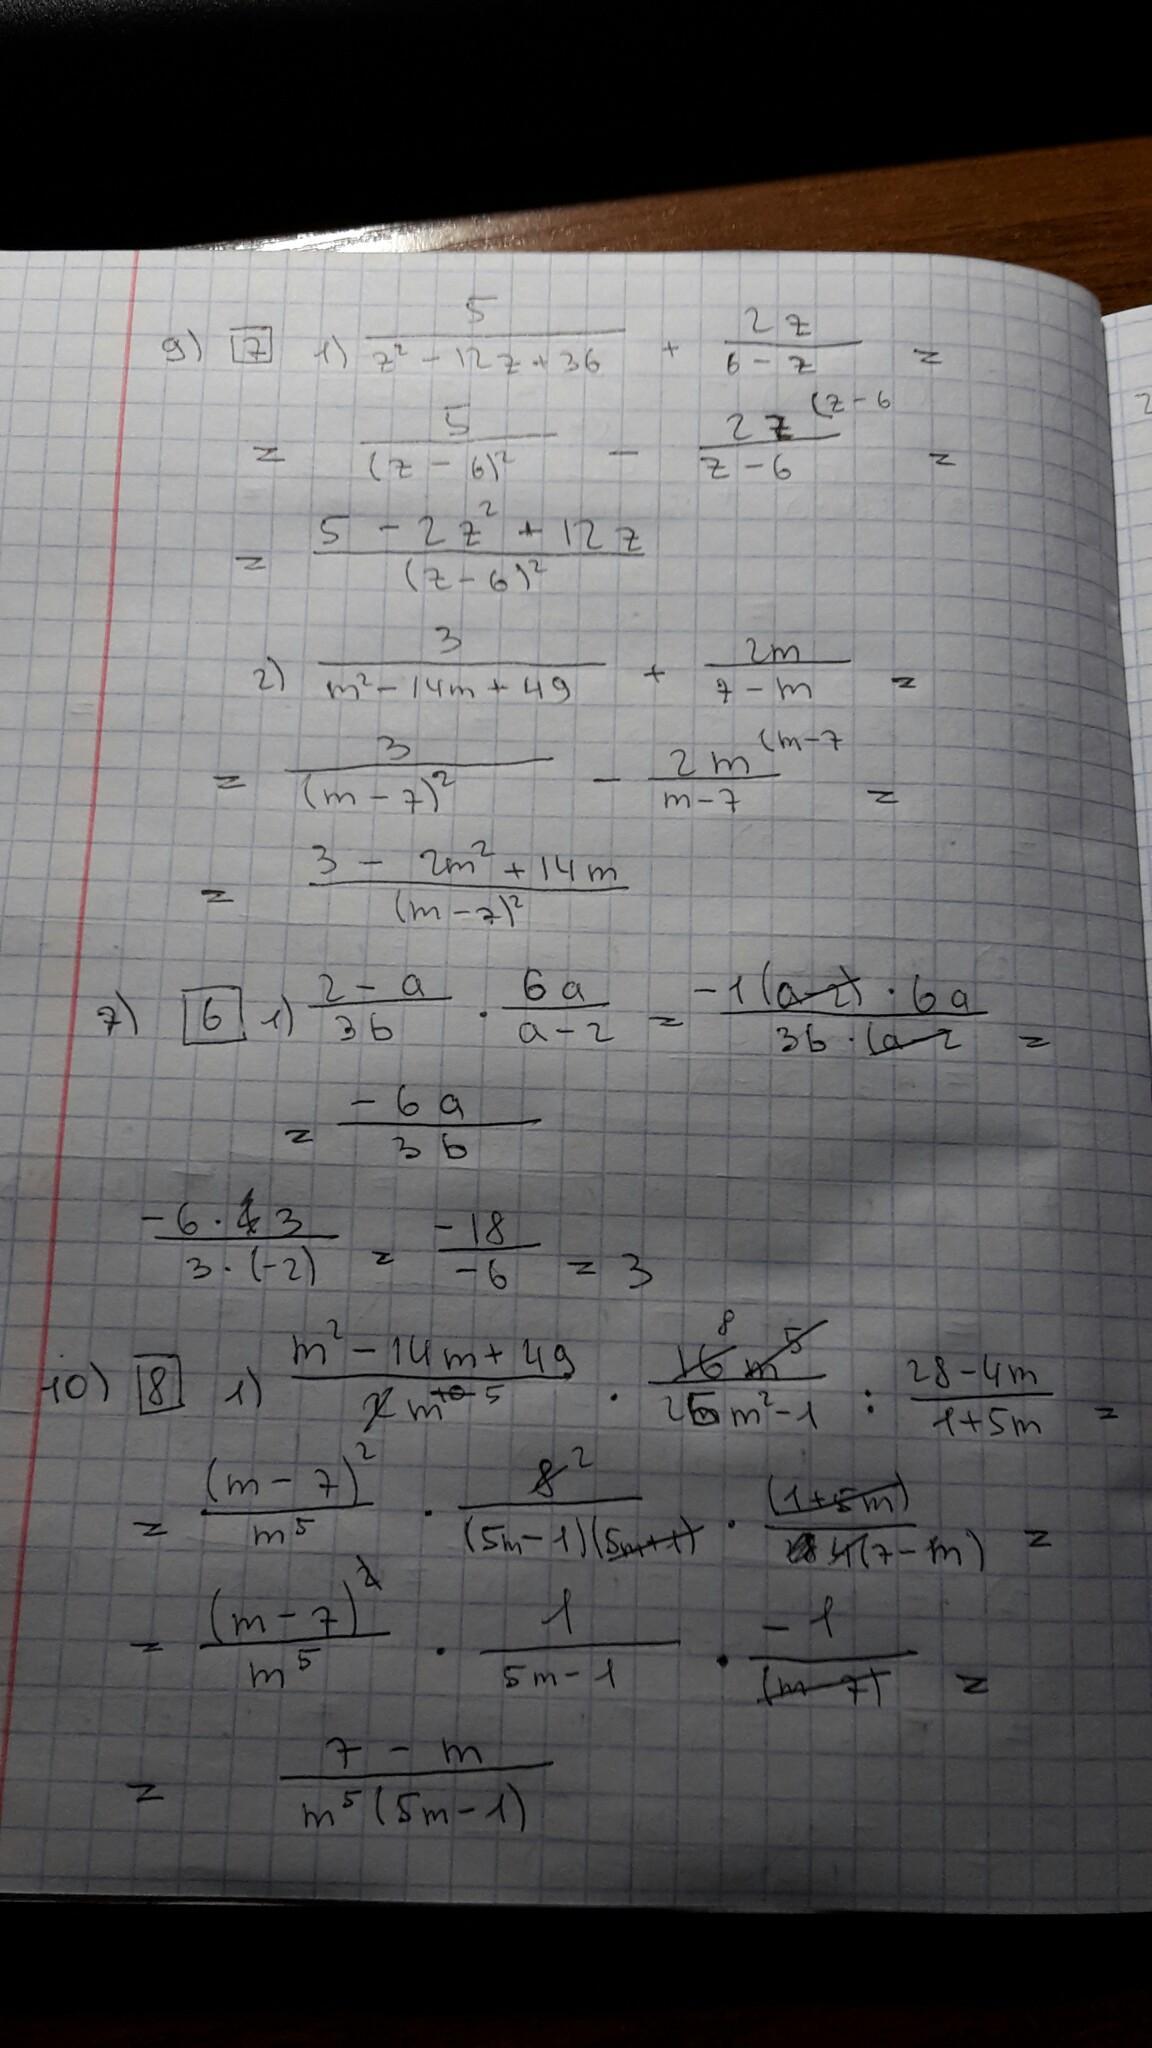 9) 7 1) 5/(z² - 12z + 36) + 2z/(6 - z) =
= 5/(z - 6)² - 2z (z - 6/(z - 6) =
= (5 - 2z² + 12z)/(z - 6)²
2) 3/(m² - 14m + 49) + 2m/(7 - m) =
= 3/(m - 7)² - 2m (m - 7/(m - 7) =
= (3 - 2m² + 14m)/(m - 7)²
7) 6 1) (2 - a)/3b · 6a/(a - 2) = (-1(a - 2) · 6a)/(3b · (a - 2) =
= -6a/3b
(-6 · 3)/(3 · (-2)) = -18/-6 = 3
10) 8 1) (m² - 14m + 49)/(2m^10 5) · 16 8 m⁵/(25m² - 1) : (28 - 4m)/(1 + 5m) =
= (m - 7)²/m⁵ · 8 2/((5m - 1)(5m + 1)) · (1 + 5m)/(4(7 - m)) =
= (m - 7)²/m⁵ · 1/(5m - 1) · -1/(m - 7) =
= (7 - m)/(m⁵(5m - 1))